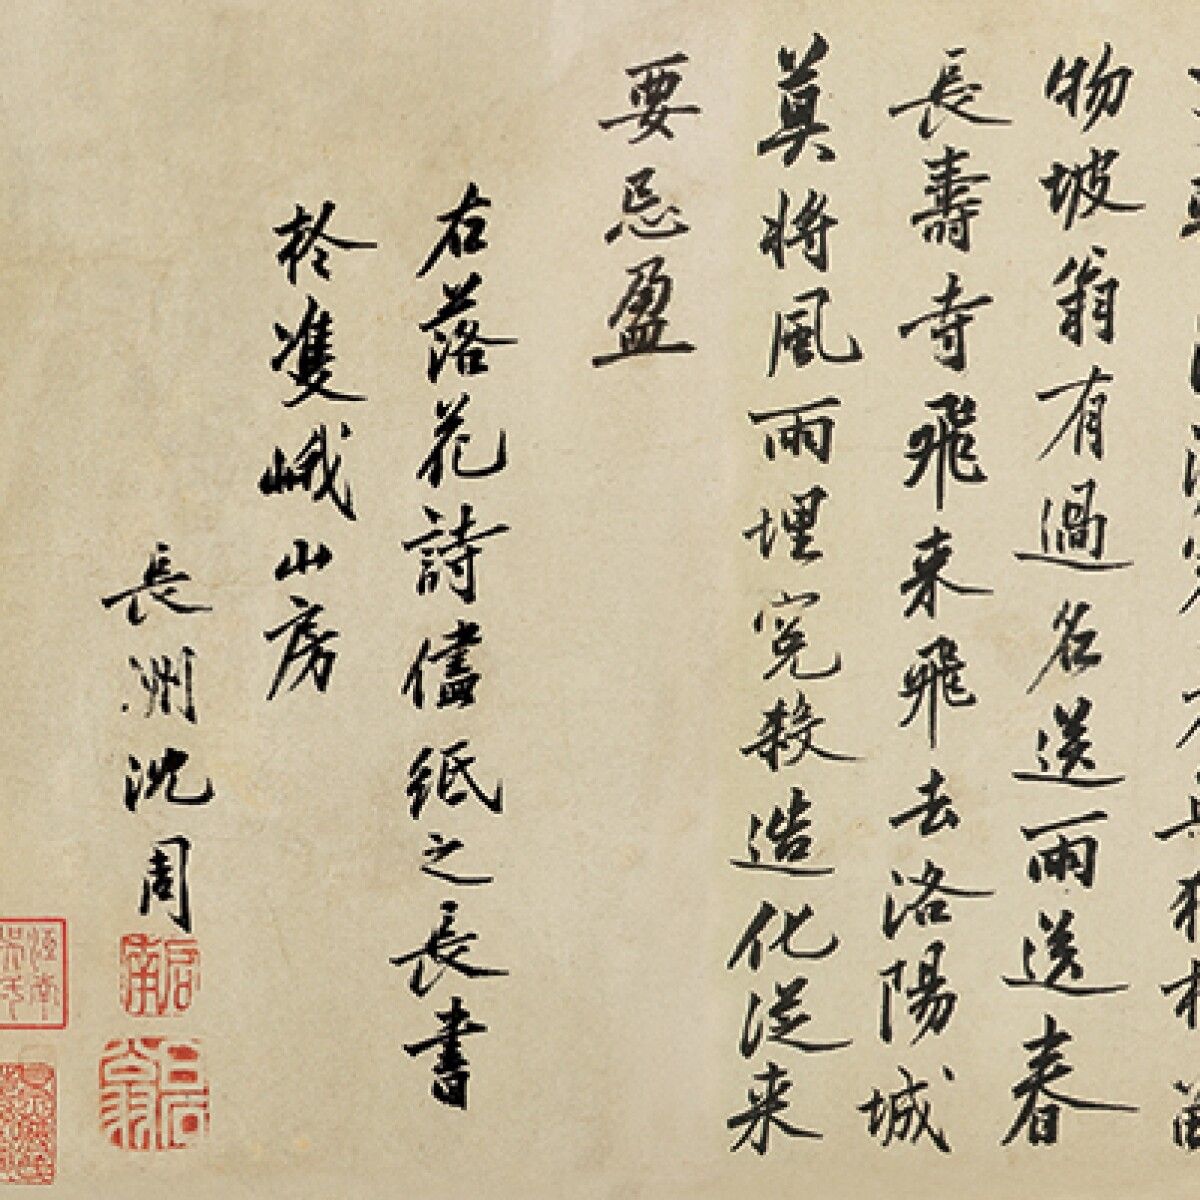 物坡翁有過名送雨送春
長壽寺飛来飛去洛陽城
莫将風雨埋寃殺造化従来
要忌盈
右落花詩儘紙之長書
扵雙峨山房
長洲沈周
啟南
白石翁